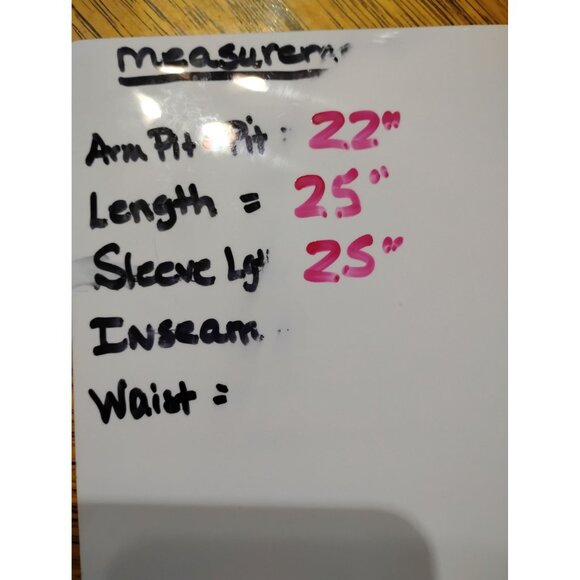 measurem
Arm Pit - Pit : 22"
Length = 25"
Sleeve Lgt 25"
Inseam
Waist =